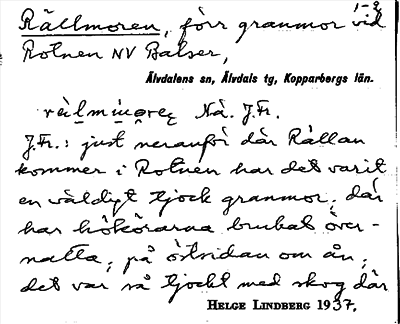 1-2
Rällmoren, förr granmor vid
Rotnen NV Balser,
Älvdalens sn, Älvdals tg, Kopparbergs län.
Nä. J.Fr.
J.Fr.: just neranför där Rällan
kommer i Rotnen har det varit
en väldigt tjock granmor; där
har hökörarna brukat över-
natta; på östsidan om ån;
det var så tjockt med skog där
HELGE LINDBERG 1937.